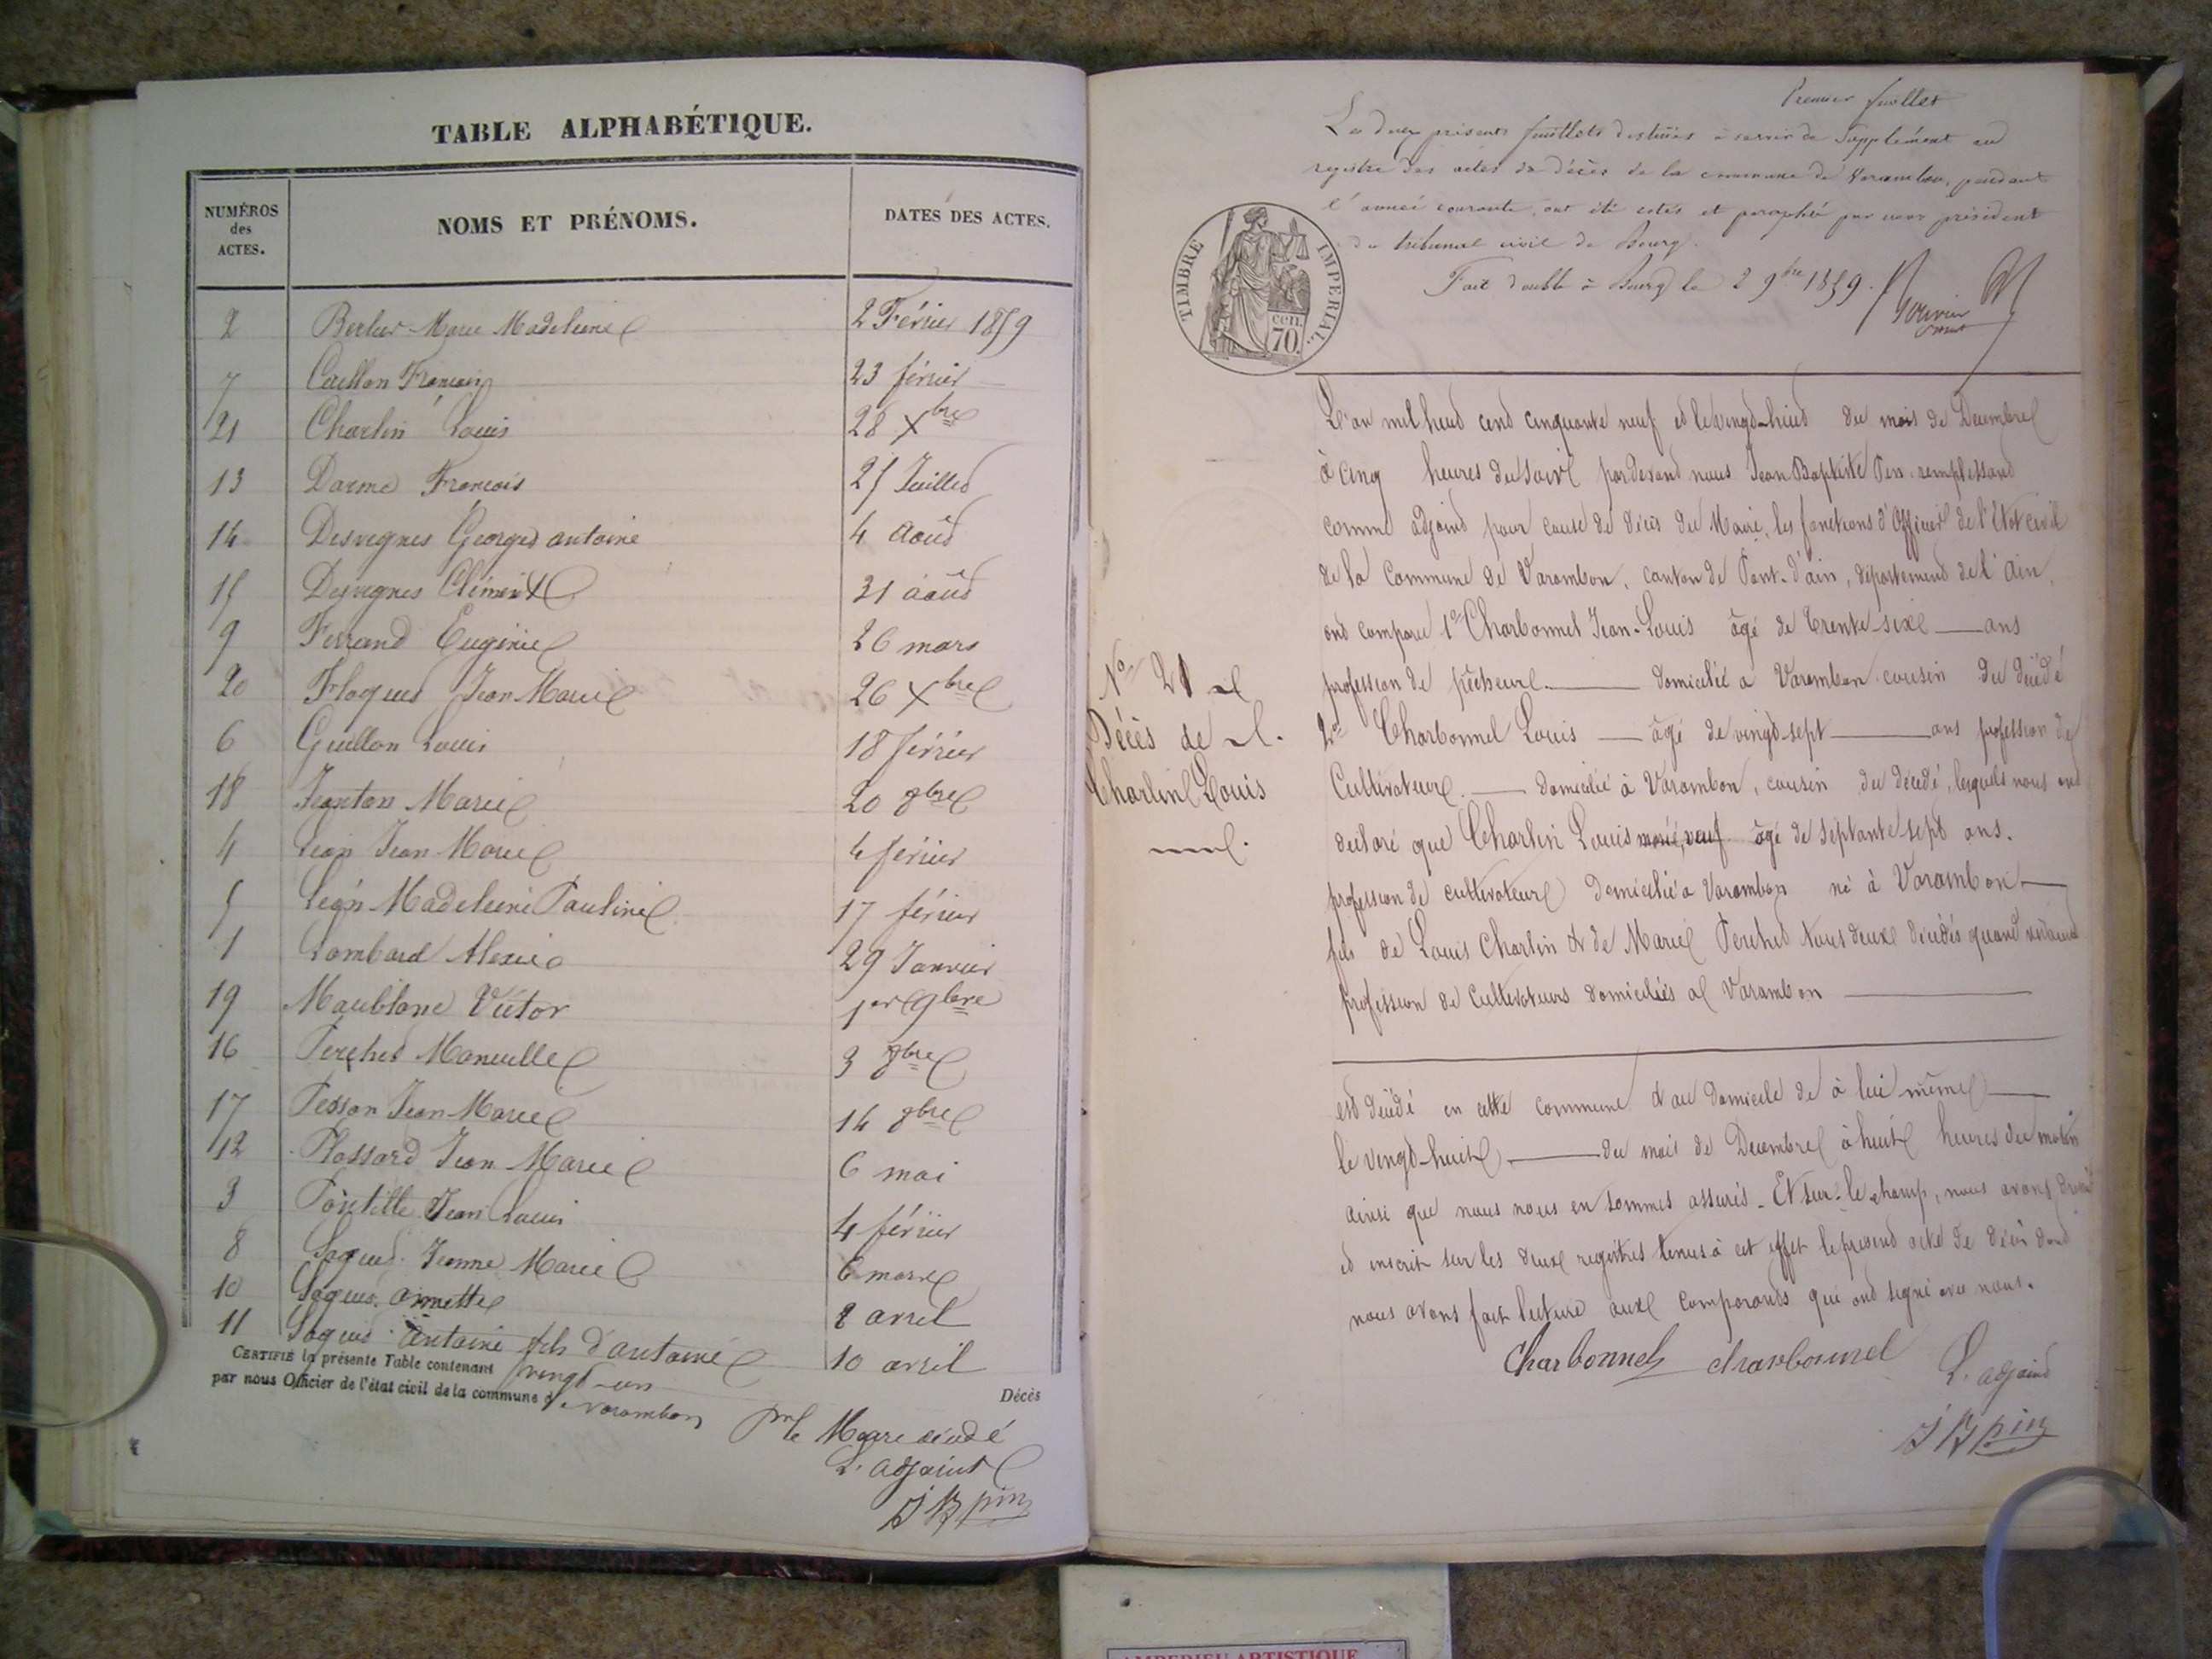 TABLE ALPHABÉTIQUE.
NUMÉROS
des
ACTES.
NOMS ET PRÉNOMS.
DATES DES ACTES.
2 Marie Madeleine 2 Février 1859
7 Caillon François 23 février
21 Charlin Louis 28 Xbre
13 Darme François 25 Juillet
14 Desvegnes Georges antoine 4 Août
15 Desvegnes Clément 21 août
9 Ferrand Eugénie 26 mars
20 Floquet Jean Marie 26 Xbre
6 Guillon Louis 18 février
18 Jeanton Marie 20 8bre
4 Léon Jean Marie 4 février
5 Léon Madeleine Pauline 17 février
1 Lombard Alexis 29 Janvier
19 Maublanc Victor 1er 9bre
16 Perchet 3 8bre
17 Pesson Jean Marie 14 8bre
12 Plossard Jean Marie 6 mai
3 Jean Louis 4 février
8 Jeanne Marie 6 mars
10 annette 2 avril
11 antoine fils d'antoine 10 avril
CERTIFIÉ la présente Table contenant vingt-un Décès
par nous Officier de l'état civil de la commune de Varambon
Pr le Maire décédé
L'adjoint
J B pin
Premier feuillet
Les deux présents feuillets destinés à servir de Supplément au
registre des actes de décès de la commune de Varambon, pendant
l'année courante, ont été cotés et paraphés par nous président
du tribunal civil de Bourg.
Fait double à Bourg le 2 9bre 1859.
TIMBRE IMPERIAL.
70. cen.
L'an mil huit cent cinquante neuf et le vingt-huit du mois de Décembre
à cinq heures du soir pardevant nous Jean Baptiste Pin remplissant
comme adjoint pour cause de décès du Maire, les fonctions d'Officier de l'Etat civil
de la Commune de Varambon, canton de Pont-d'ain, département de l'Ain,
ont comparu 1er Charbonnel Jean-Louis âgé de trente-six ans
profession de pêcheur domicilié a Varambon cousin du décédé
2e Charbonnel Louis âgé de vingt-sept ans profession de
Cultivateur domicilié à Varambon, cousin du décédé, lesquels nous ont
déclaré que Charlin Louis marié, veuf âgé de septante sept ans.
profession de cultivateur domicilié a Varambon né à Varambon
fils de Louis Charlin et de Marie Perchet tous deux décédés quand vivaient
profession de Cultivateurs domiciliés a Varambon
est décédé en cette commune et au domicile de à lui même
le vingt-huit du mois de Décembre à huit heures du matin
ainsi que nous nous en sommes assurés. Et sur-le-champ, nous avons dressé
et inscrit sur les deux registres tenus à cet effet le présent acte de décès dont
nous avons fait lecture aux comparants qui ont signé avec nous.
Charbonnel charbonnel
L'adjoint
J B pin
No 21
Décès de
Charlin Louis
AMBERIEU ARTISTIQUE